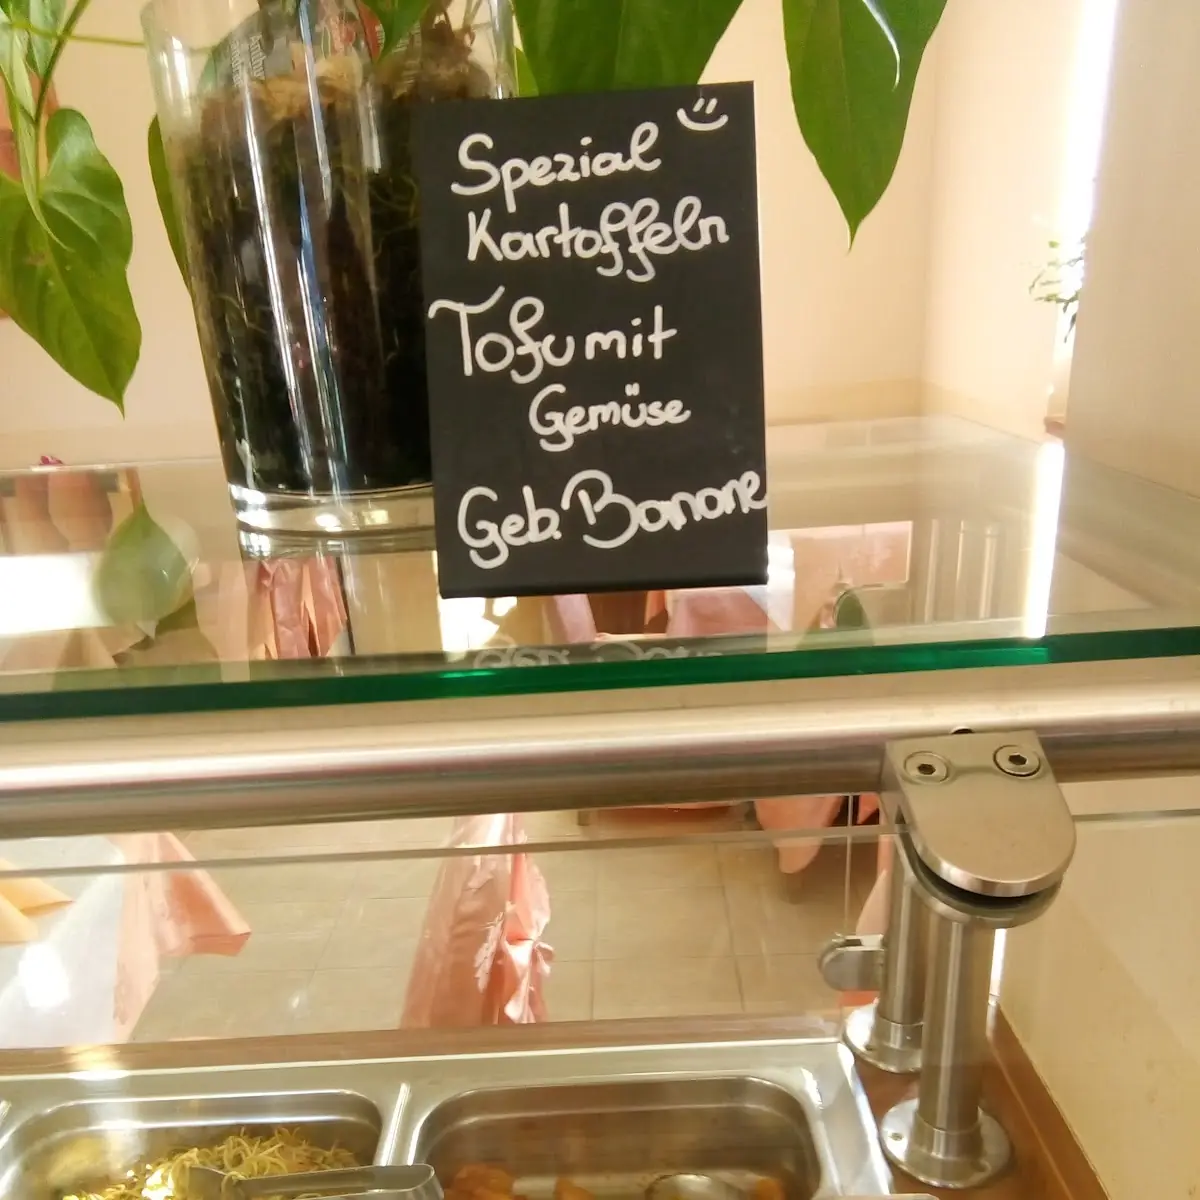 Spezial
Kartoffeln
Tofu mit
Gemüse
Geb. Banane